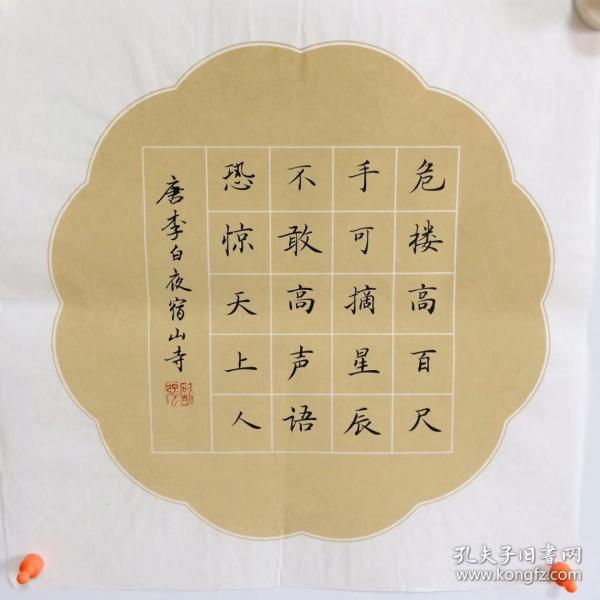 危楼高百尺
手可摘星辰
不敢高声语
恐惊天上人
唐李白夜宿山寺
孔夫子旧书网
www.kongfz.com